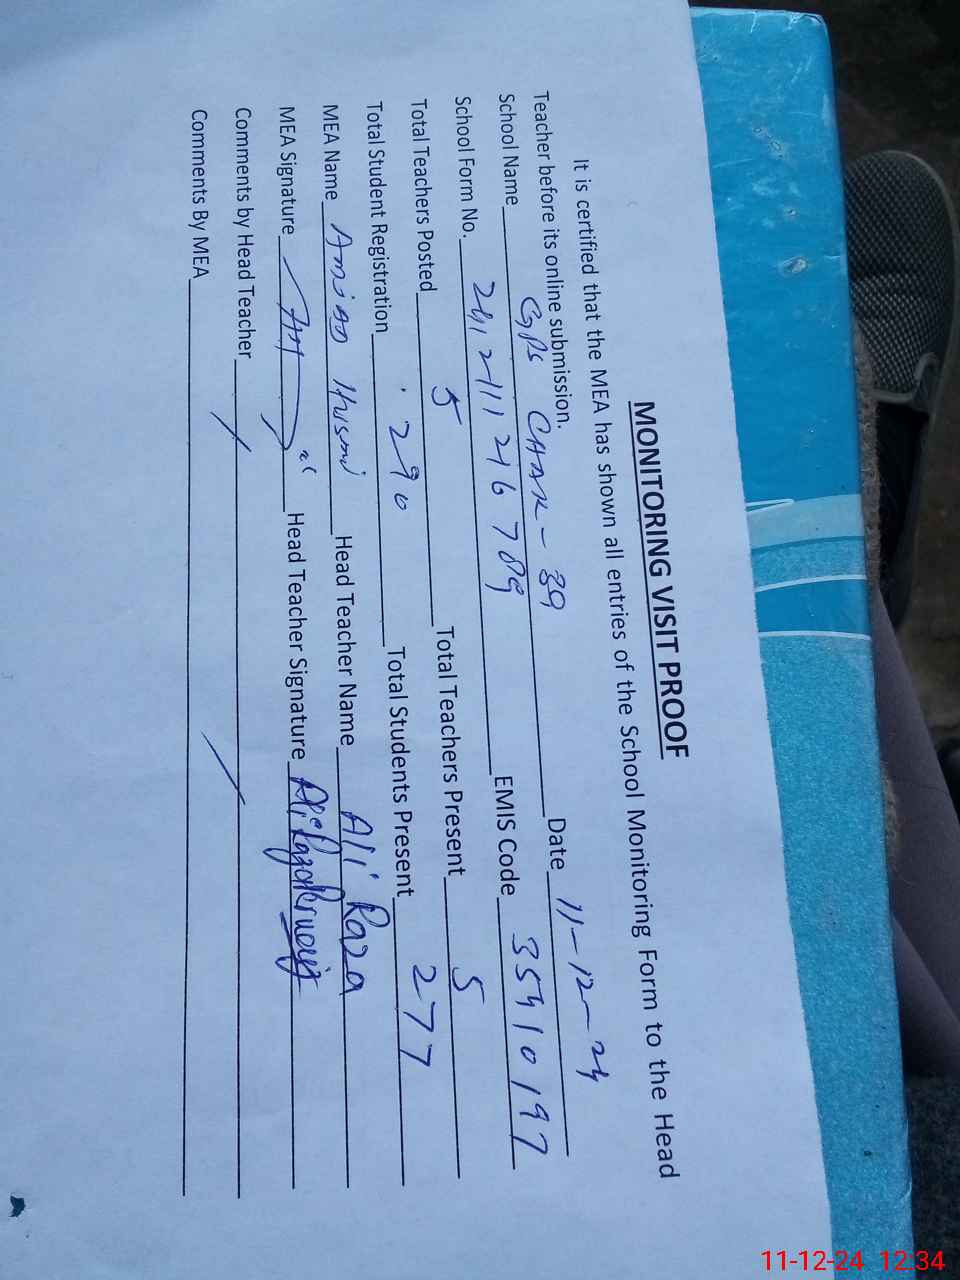 MONITORING VISIT PROOF
It is certified that the MEA has shown all entries of the School Monitoring Form to the Head
Teacher before its online submission.
School Name GPS CHAK-39 Date 11-12-24
School Form No. EMIS Code 35410197
Total Teachers Posted 5 Total Teachers Present 5
Total Student Registration 290 Total Students Present 277
MEA Name Head Teacher Name Ali Raza
MEA Signature Head Teacher Signature
Comments by Head Teacher
Comments By MEA
11-12-24 12:34